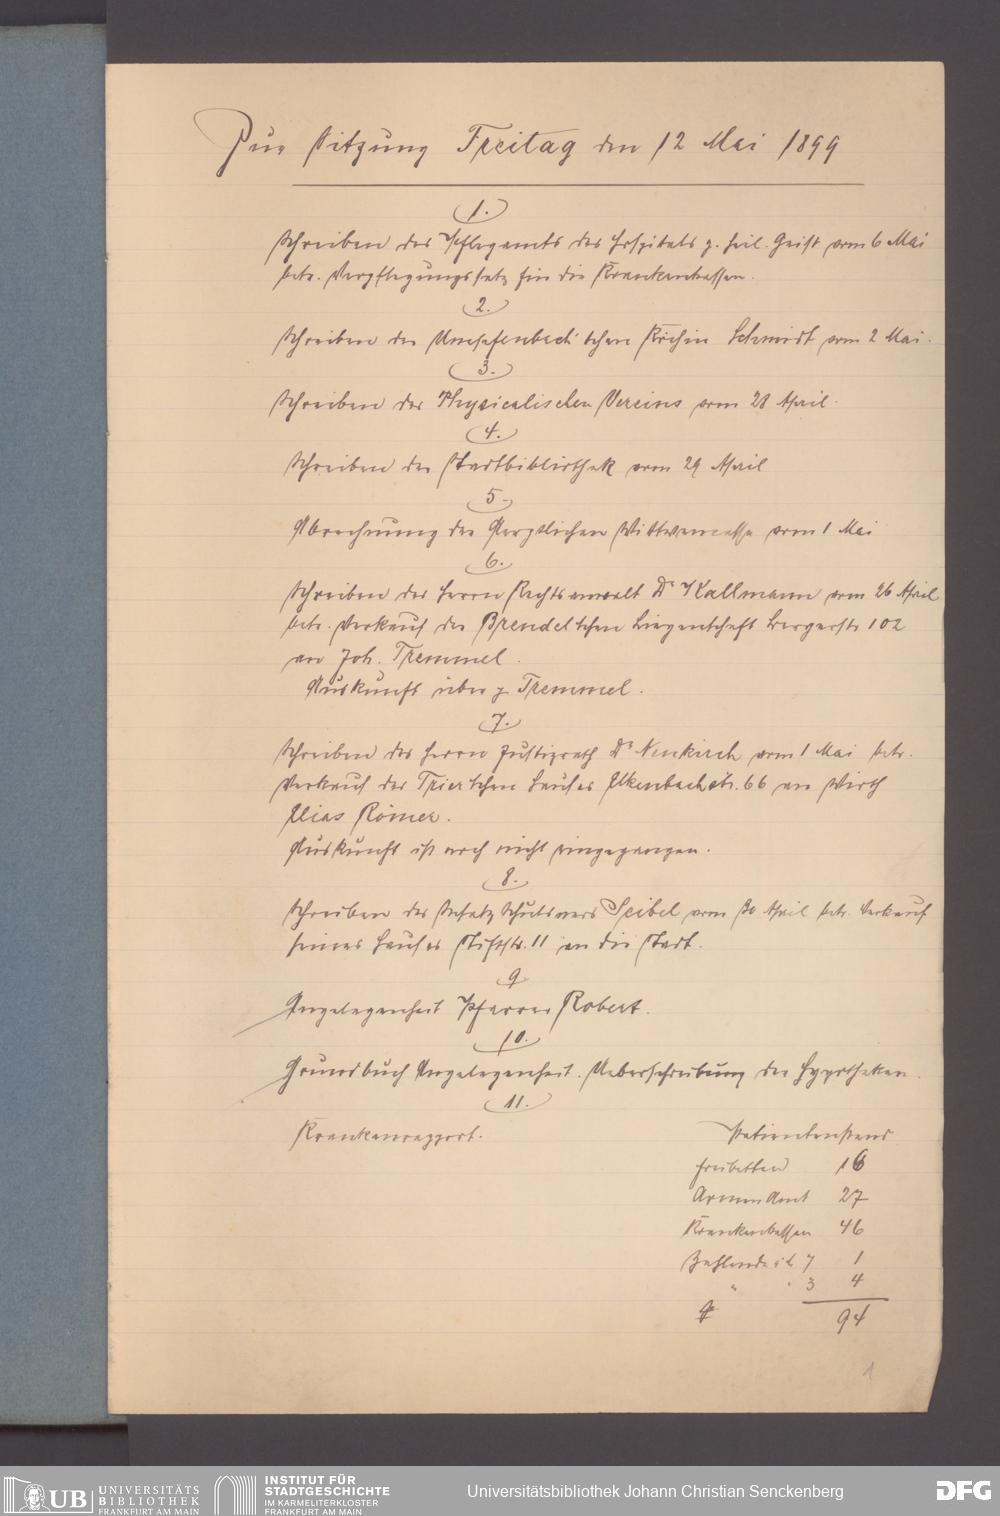 Zur Sitzung Freitag den 12 Mai 1899
1.
Schreiben des Pflegamts des Hospitals z. heil. Geist vom 6 Mai
betr. Verpflegungssatz für die Krankenkassen.
2.
Schreiben der Köchin Schmidt vom 2 Mai.
3.
Schreiben des Physicalischen Vereins vom 28 April.
4.
Schreiben der Stadtbibliothek vom 29 April
5.
Abrechnung der Aerztlichen Wittwencasse vom 1 Mai
6.
Schreiben des Herrn Rechtsanwalt Dr Kallmann vom 26 April
betr. Verkauf der Brendel'schen Liegenschaft Bergerstr 102
an Joh. Tremmel.
Auskunft über J. Tremmel.
7.
Schreiben des Herrn Justizrath Dr Neukirch vom 1 Mai betr.
Verkauf des Trier'schen Hauses Elkenbachstr. 66 an Wirth
Elias Römer.
Auskunft ist noch nicht eingegangen.
8.
Schreiben des Seibel vom 30 April betr. Verkauf
seines Hauses Stiftstr. 11 an die Stadt.
9
Angelegenheit Pfarrer Robert.
10.
Grundbuch Angelegenheit. Ueberschreibung der Hypotheken.
11.
Krankenrapport.
Patientenstand
Freibetten 16
Armen Amt 27
Krankenkassen 46
Zahlende à M 7 1
" " 3 4
94
1
UB UNIVERSITÄTS
BIBLIOTHEK
FRANKFURT AM MAIN
INSTITUT FÜR
STADTGESCHICHTE
IM KARMELITERKLOSTER
FRANKFURT AM MAIN
Universitätsbibliothek Johann Christian Senckenberg
DFG